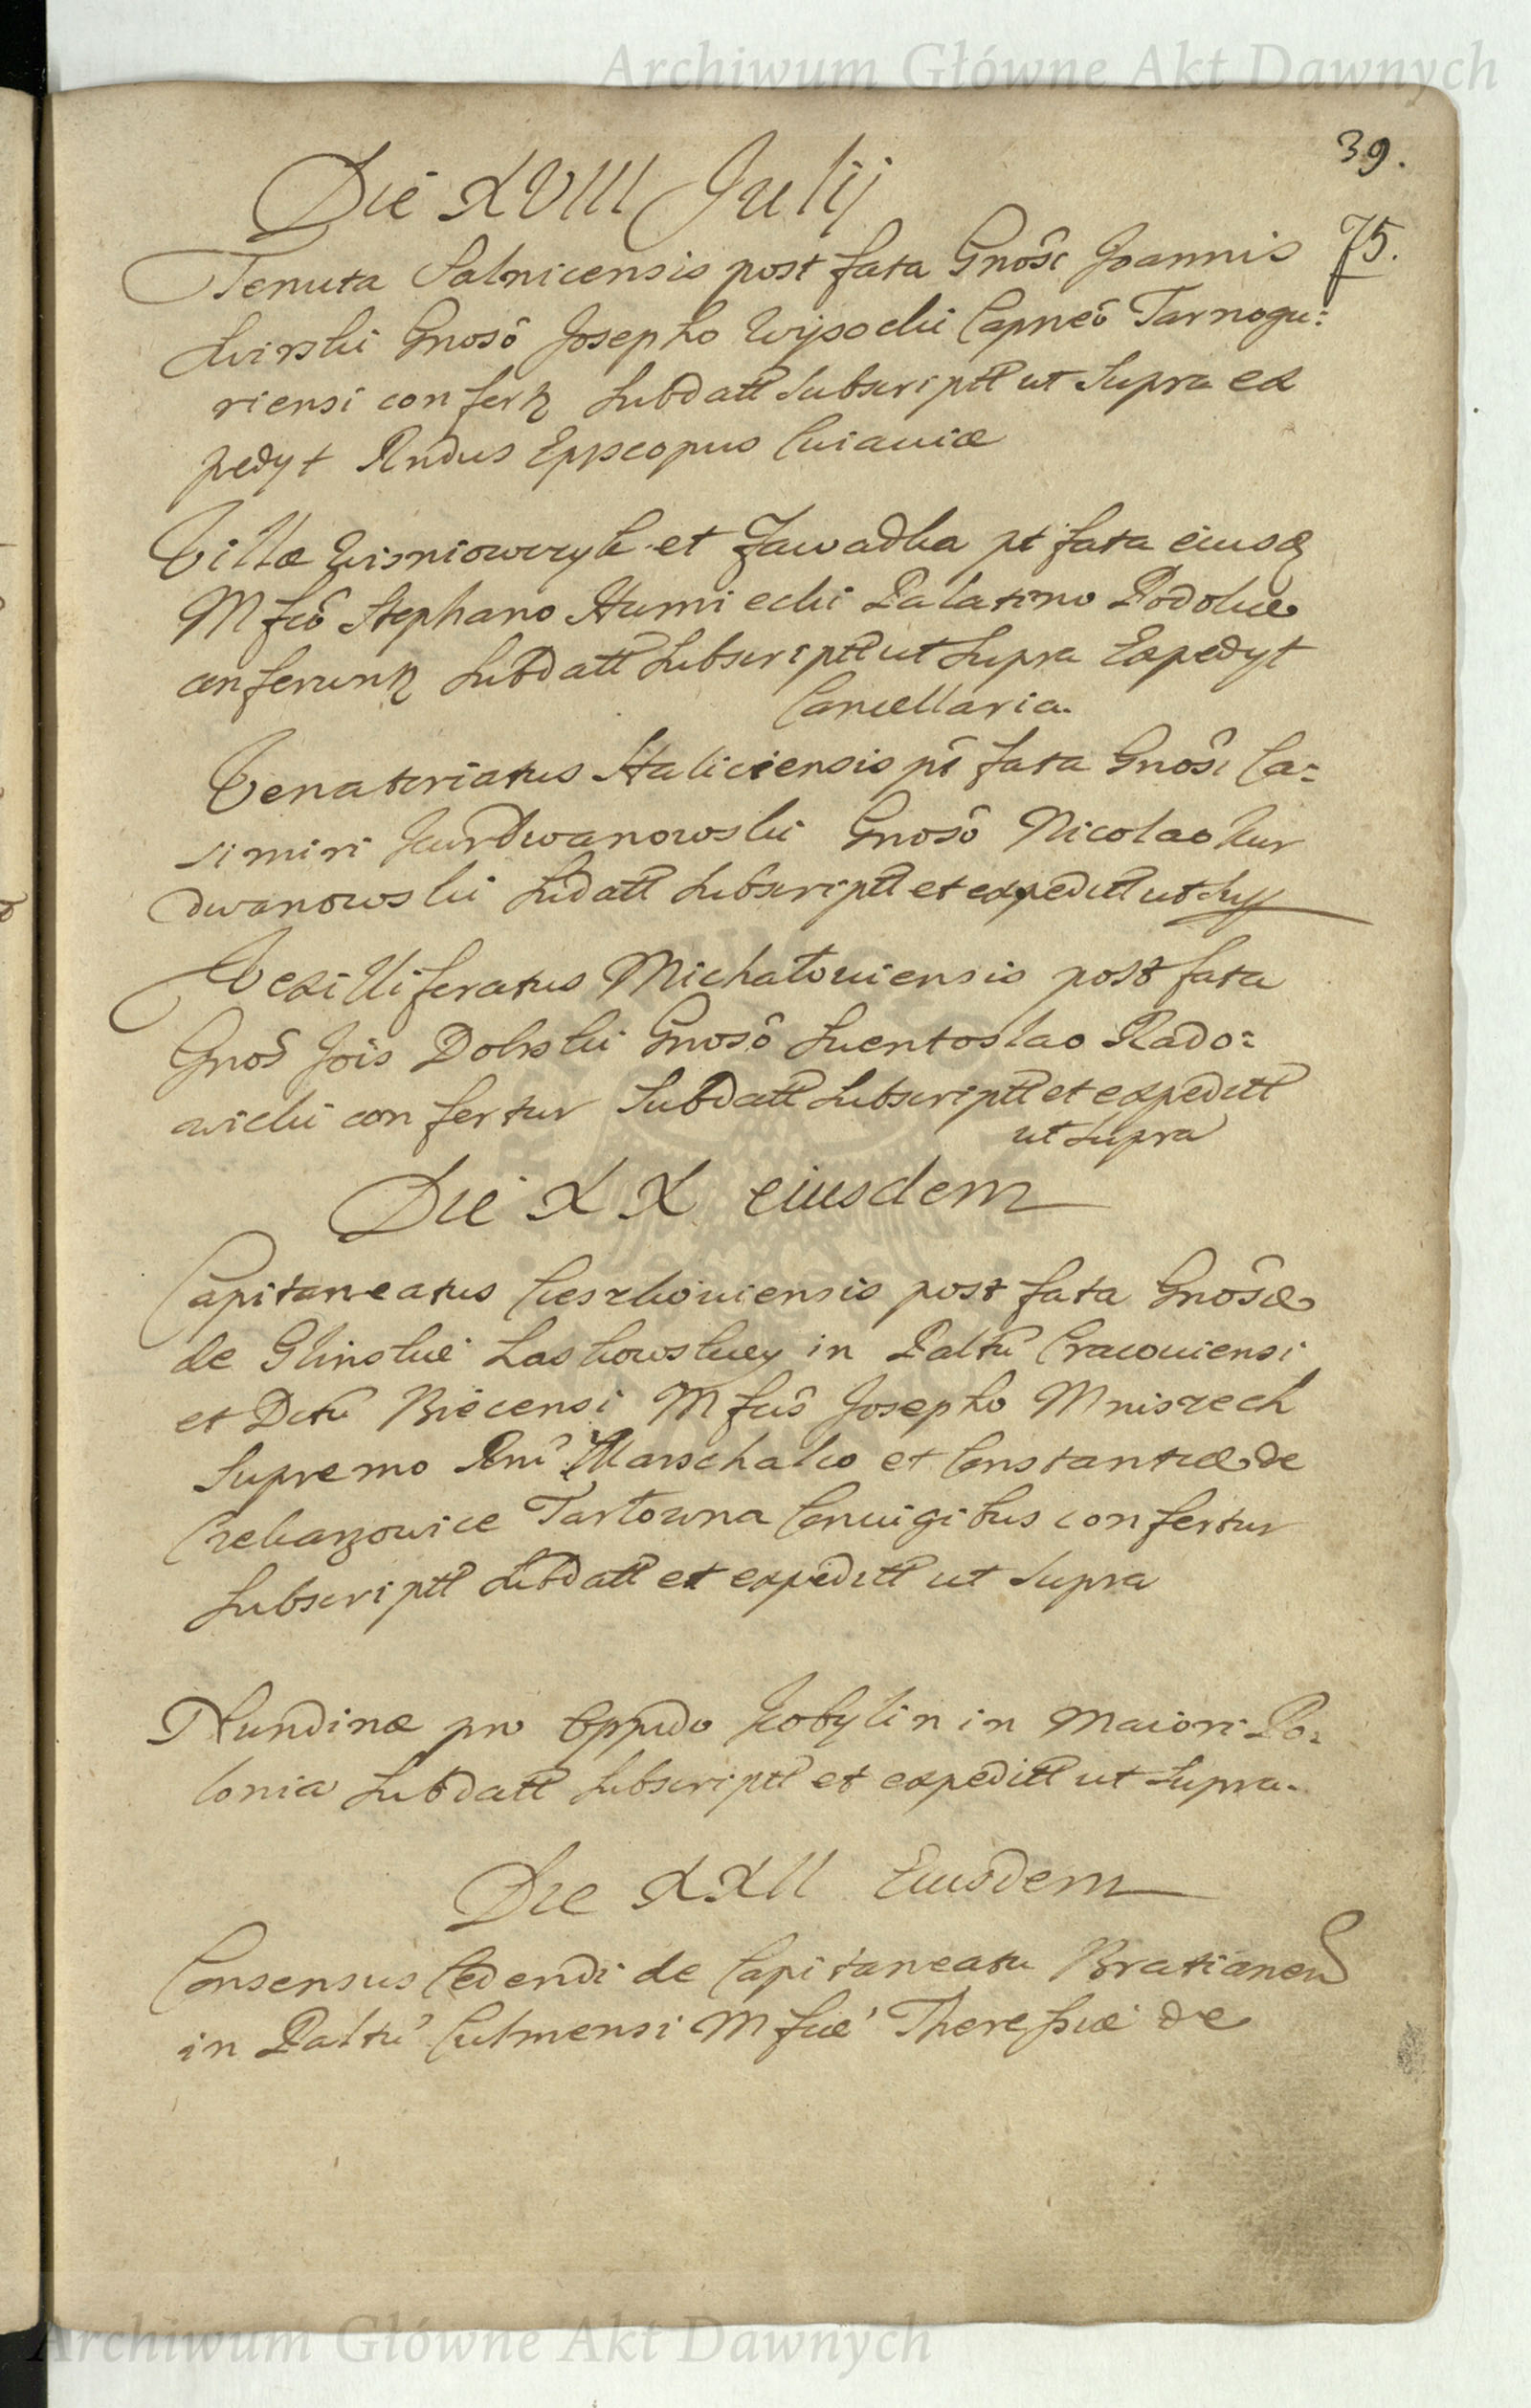 Archiwum Główne Akt Dawnych
39.
Die XVIII Julij
75.
Tenuta Salnicensis post fata Gnôsi Joannis
Swirski Gnosô Josepho Wysocki Capneô Tarnogu:
riensi confertz Subdatt Subscriptt ut Supra ex
pedyt Rndus Eppscopus Cuiaviæ
Villæ Wisniowczyk et Zawadka pt fata eiusd
Mfcô Stephano Humiecki Palatino Podoliæ
conferuntz Subdatt Subscriptt ut Supra Expedyt
Cancellaria.
Venatoriatus Haliciensis pt fata Gnôsi Ca:
simiri Kurdwanowski Gnosô Nicolao Kur
dwanowski Subdatt Subscriptt et expeditt ut Sup
Vexilliferatus Michałoviensis post fata
Gnos Jois Dolski Gnosô Suentoslao Rado:
wicki confertur Subdatt Subscriptt et expeditt
ut Supra
Die XX eiusdem
Capitaneatus Cieszkoviensis post fata Gnôsæ
de Glinskie Laskowskiey in Paltu Cracouiensi
et Dctu Biecensi Mfcis Josepho Mniszech
Supremo Rni Marschalco et Constantiæ de
Czekarzowice Tarłowna Coniugibus confertur
Subscriptt Subdatt et expeditt ut Supra
Nundinæ pro Oppido Kobylin in Maiori Po:
lonia Subdatt Subscriptt et expeditt ut Supra.
Die XXII Eiusdem
Consensus Cedendi de Capitaneatu Bratianen
in Paltu Culmensi Mfcæ Theressiæ de
Archiwum Główne Akt Dawnych